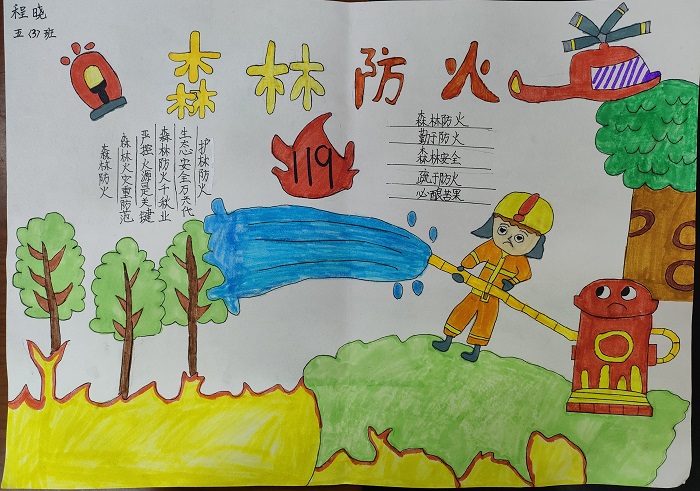 程晓
五(3)班
森林防火
119
森林防火
勤于防火
森林安全
疏于防火
心酿苦果
护林防火
生态安全万代
森林防火千秋业
严控火源是关键
森林火灾重防范
森林防火